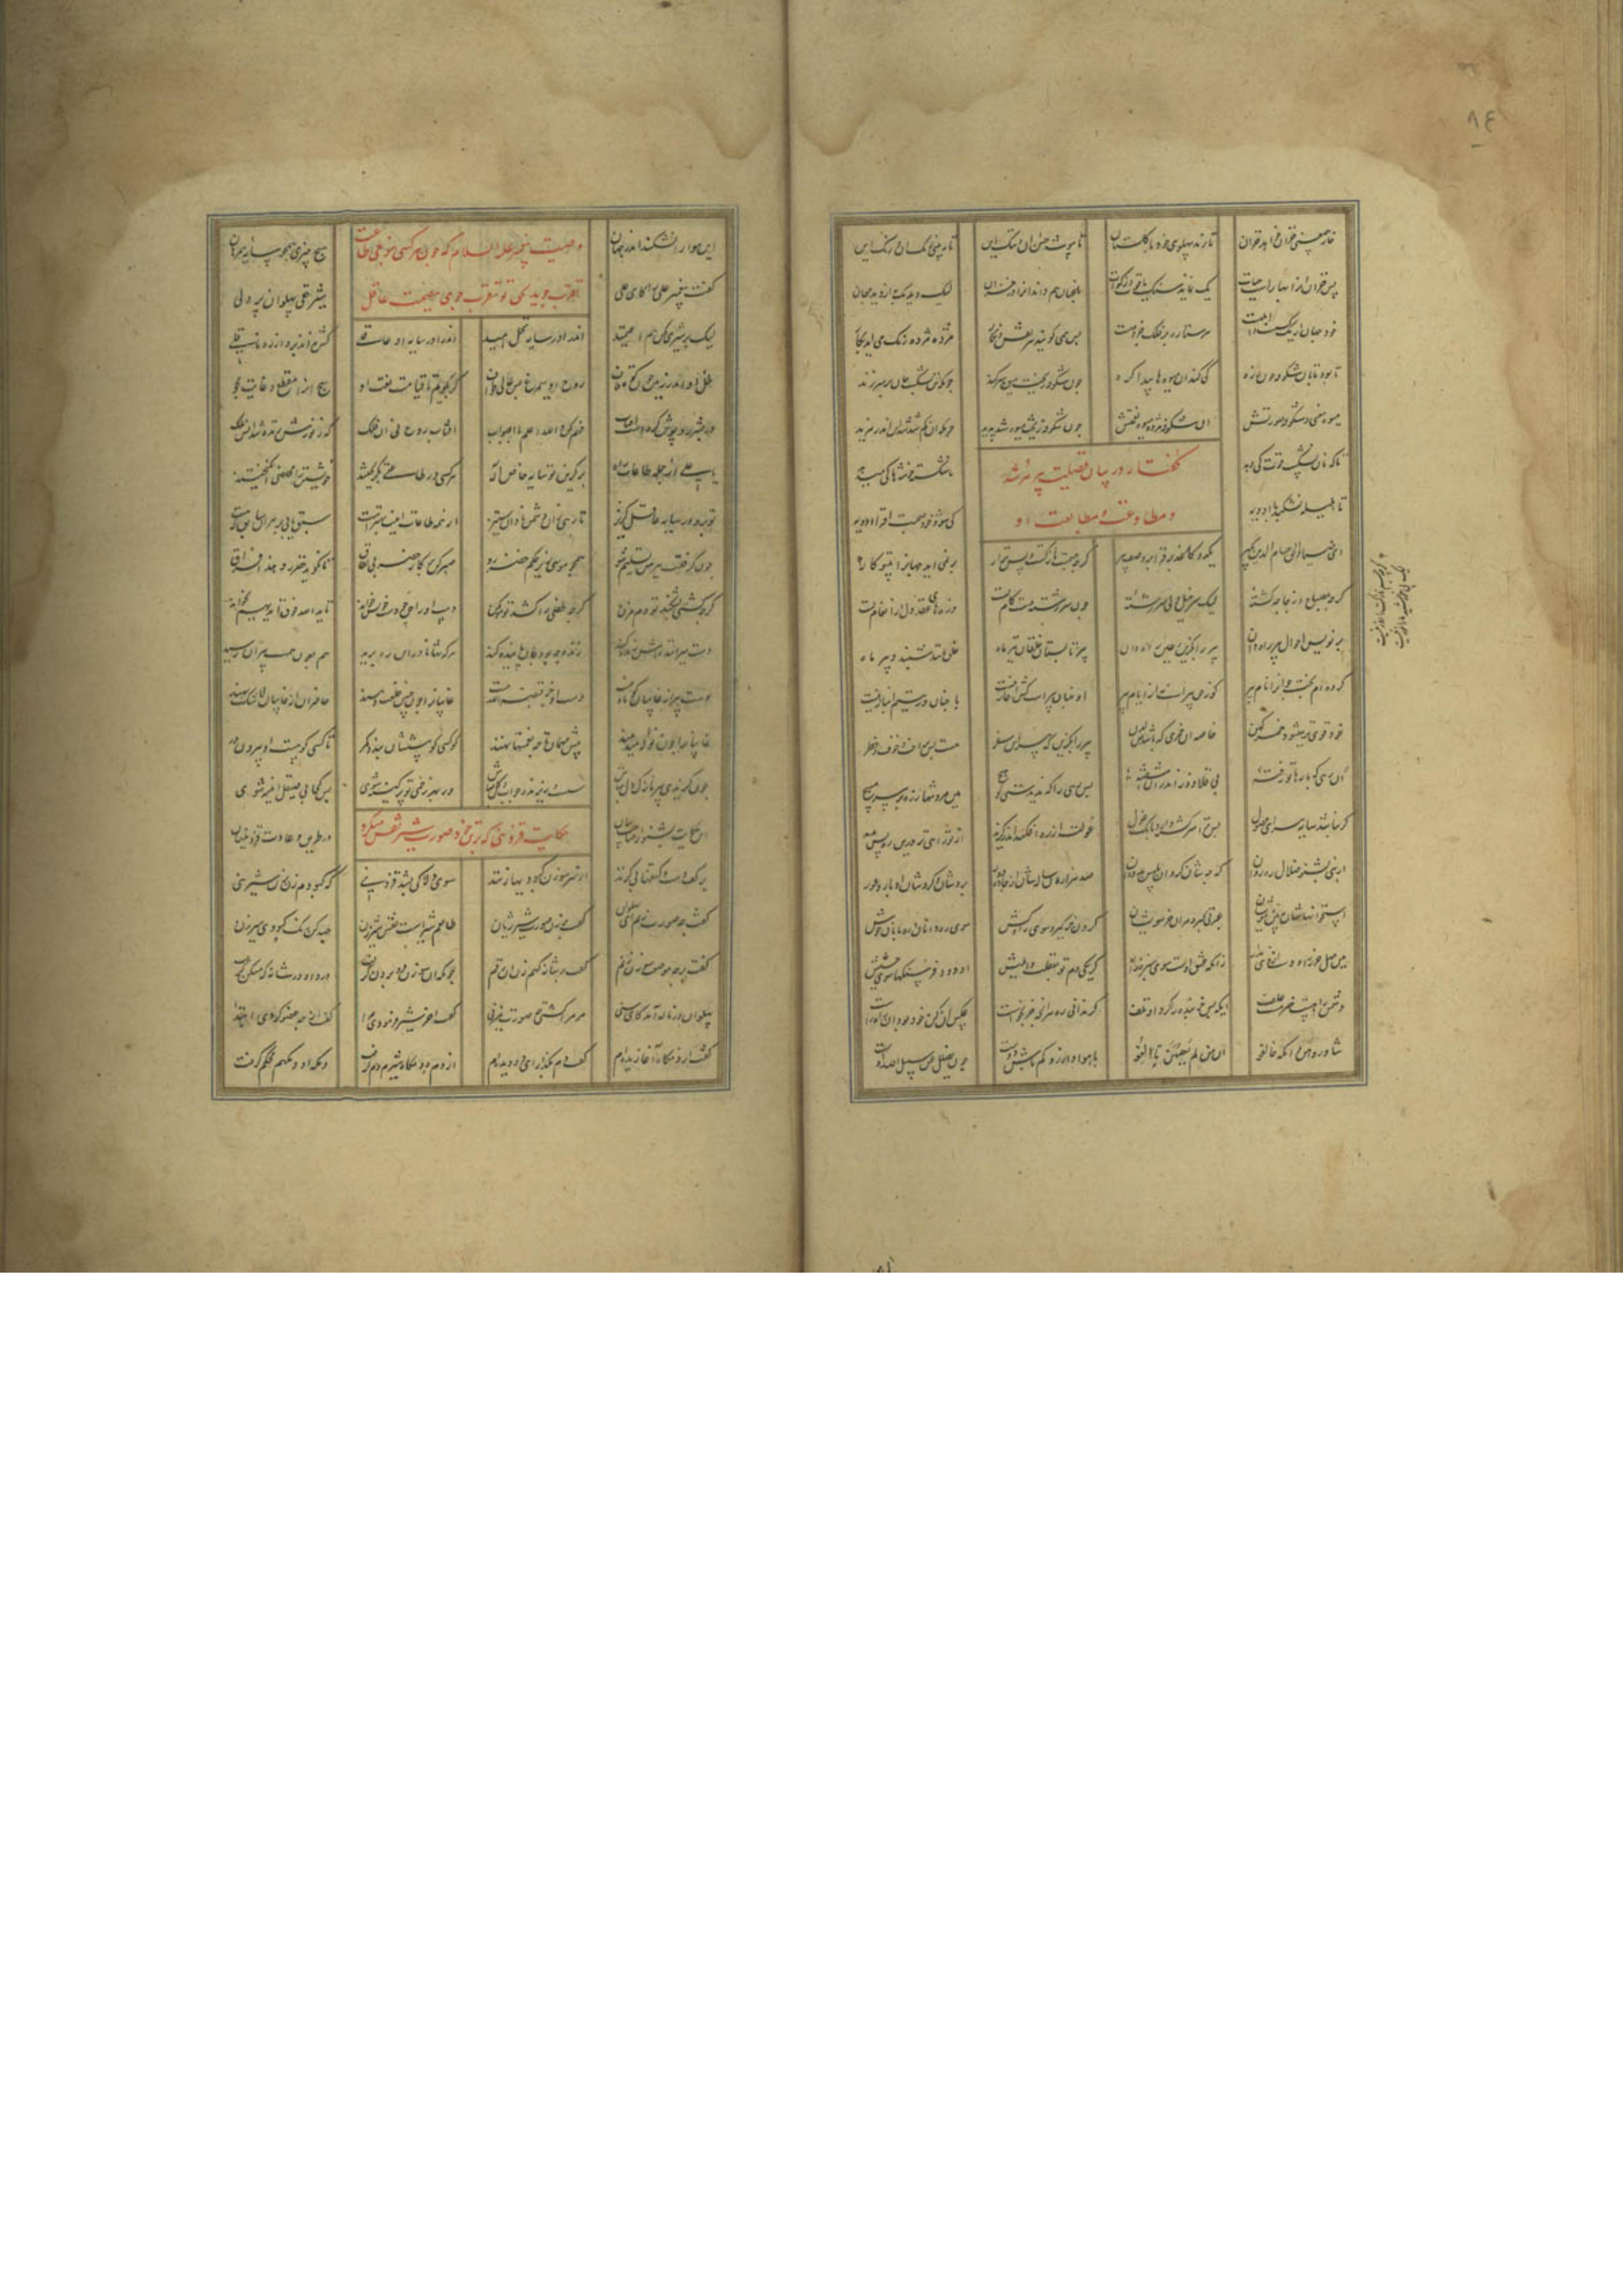 خار جمعیتی خزان خواهد خزان تا زند پهلوی خود با گلستان تا بپوشد حسن آن و ننگ این تا نبینی رنگ آن و زنگ این
پس خزان او را بهارست و حیات یک نماید سنگ و یاقوت زکات باغبان هم داند آنرا در خزان لیک دید یک به از دید جهان
خود جهان آن یک کس است هر ستاره بر فلک جزو مهست پس همی کویند هر نقش و نکار مژده مژده نک همی آید بهار
تا بود تابان شکوفه چون زره کی کنند آن میوه‌ها پیدا کره چون شکوفه ریخت میوه سر کند چونکه تن بشکست جان سر بر زند
میوه معنی و شکوفه صورتش آن شکوفه مژده میوه نعمتش چون شکوفه ریخت میوه شد پدید چونکه آن کم شد شد این اندر مزید
تا که نان نشکست قوت کی دهد ناشکسته خوشها کی می دهد
کفتار در بیان فضیلت پیر مرشد
و مطاوعت و متابعت او
تا هلیله نشکند با ادویه کی شود خود صحت افزا ادویه
ای ضیاء الحق حسام الدین بکیر یک دو کاغذ بر فزا در وصف پیر کرچه جسمت نازکست و بس نزار برنمی آید جهان را بی تو کار
کرچه مصباح و زجاجه کشتهٔ لیک سرخیل دلی سررشتهٔ چون سررشته بدست کام تست درهای عقد دل ز انعام تست
بر نویس احوال پیر راه دان پیر را بکزین و عین راه دان پیر تابستان و خلقان تیر ماه خلق مانند شبند و پیر ماه
کرده ام بخت جوان را نام پیر کو ز حق پیرست نز ایام پیر او چنان پیرست کش آغاز نیست با چنان در یتیم انباز نیست
خود قوی تر میشود خمر کهن خاصه آن خمری که باشد من لدن پیر را بکزین که بی پیر این سفر هست بس پر آفت و خوف و خطر
آن رهی که بارها تو رفتهٔ بی قلاوز اندر آن آشفتهٔ پس رهی را که ندیدستی تو هیچ هین مرو تنها ز رهبر سر مپیچ
کر نباشد سایه پس ترا سرکشته دارد بانک غول غولت از ره افکند اندر کزند از تو داهی تر درین ره بس بدند
از نبی بشنو ضلال ره روان که چه شان کرد آن بلیس بدروان صد هزاران ساله راه از جاده دور بردشان و کردشان ادبار و عور
استخوانهاشان ببین و مویشان عبرتی کیر و مران خر سویشان کردن خر کیر و سوی راه کش سوی ره بانان و ره دانان خوش
هین مهل خر را و دست از وی مدار زانکه عشق اوست سوی سبزه زار کر یکی دم تو بغفلت وا هلیش او رود فرسنکها سوی حشیش
دشمن راهست خر مست علف ای که بس خربنده را کرد او تلف کر ندانی ره هر آنچه خر بخواست عکس آن کن خود بود آن راه راست
شاوروهن وانکه خالفوا ان من لم یعصهن تالف با هوا و آرزو کم باش دوست چون یضلک عن سبیل الله اوست
این هوا را نشکند اندر جهان هیچ چیزی همچو سایه همرهان
وصیت پیغمبر علیه السلام که چون هر کسی بنوعی طاعت
تقرب جوید بحق تو تقرب جوی بصحبت عاقل
کفت پیغمبر علی را کای علی شیر حقی پهلوان پر دلی
لیک بر شیری مکن هم اعتماد اندر آ در سایه نخل امید اندر آ در سایه آن عاقلی کش نداند برد از ره ناقلی
ظل او اندر زمین چون کوه قاف روح او سیمرغ بس عالی طواف کر بکویم تا قیامت نعت او هیچ آنرا مقطع و غایت مجو
در بشر روپوش کردست آفتاب فهم کن والله اعلم بالصواب آفتاب روح نی آن فلک که ز نورش زنده شد انس و ملک
یا علی از جمله طاعات راه بر کزین تو سایه خاص اله هر کسی در طاعتی بکریختند خویشتن را مخلصی انکیختند
تو برو در سایه عاقل کریز تا رهی زان دشمن پنهان ستیز از همه طاعات اینت بهترست سبق یابی بر هر آن سابق که هست
چون کرفتت پیر هین تسلیم شو همچو موسی زیر حکم خضر رو صبر کن بر کار خضر بی نفاق تا نکوید خضر رو هذا فراق
کر چه کشتی بشکند تو دم مزن کر چه طفلی را کشد تو مو مکن دست او را حق چو دست خویش خواند تا ید الله فوق ایدیهم براند
دست حق میراندش زنده کند زنده چه بود جان پاینده کند هر که تنها نادرا این ره برید هم بعون همت پیران رسید
دست پیر از غایبان کوتاه نیست دست او جز قبضه الله نیست غایبان را چون چنین خلعت دهند حاضران از غایبان لا شک بهند
غایبان را چون نواله میدهند پیش مهمان تا چه نعمتها نهند کو کسی کو پیششان بندد کمر تا کسی کو هست از بیرون در
چون کزیدی پیر نازک دل مباش سست و ریزنده چو آب و کل مباش ور بهر زخمی تو پر کینه شوی پس کجا بی صیقل آیینه شوی
حکایت قزوینی که بر تن خود صورت شیر نقش میکرد
این حکایت بشنو از صاحب بیان در طریق و عادت قزوینیان
بر تن و دست و کتفها بی کزند از سر سوزن کبودیها زنند سوی دلاکی بشد قزوینی که کبودم زن بکن شیرینی
کفت چه صورت زنم ای پهلوان کفت بر زن صورت شیر ژیان طالعم شیرست نقش شیر زن جهد کن رنک کبودی سیر زن
کفت بر چه موضعت سوزن زنم کفت بر شانه کهم زن آن رقم چونکه او سوزن فرو بردن کرفت درد آن در شانکه مسکن کرفت
پهلوان در ناله آمد کای سنی مر مرا کشتی چه صورت میزنی کفت آخر شیر فرمودی مرا کفت از چه عضو کردی ابتدا
کفت از دمکاه آغازیده ام کفت دم بکذار ای دو دیده ام از دم و دمکاه شیرم دم کرفت دمکه او دمکهم محکم کرفت